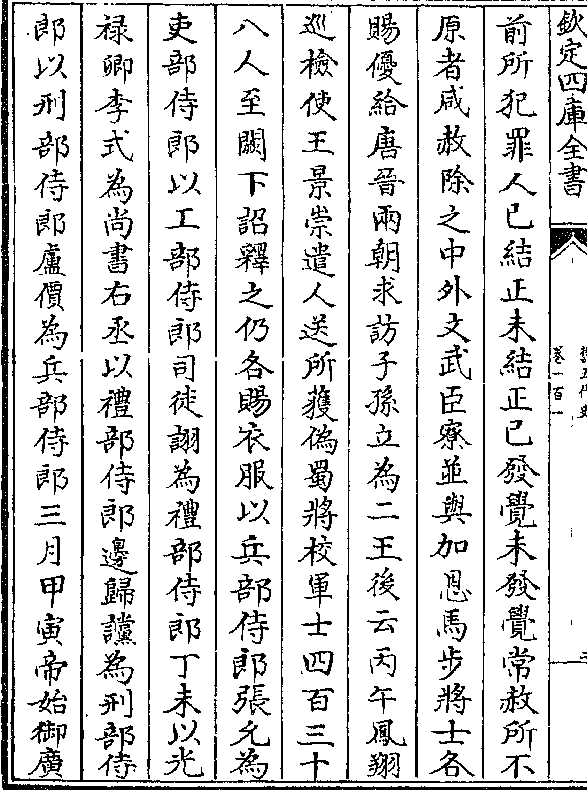 欽定四庫全書
卷一百一
前所犯罪人已結正未結正已發覺未發覺常赦所不
原者咸赦除之中外文武臣寮並與加恩馬步將士各
賜優給唐晉兩朝求訪子孫立為二王後云丙午鳳翔
巡檢使王景崇遣人送所獲偽蜀將校軍士四百三十
八人至闕下詔釋之仍各賜衣服以兵部侍郎張允為
吏部侍郎以工部侍郎司徒詡為禮部侍郎丁未以光
禄卿李式為尚書右丞以禮部侍郎邊歸讜為刑部侍
郎以刑部侍郎盧價為兵部侍郎三月甲寅帝始御廣